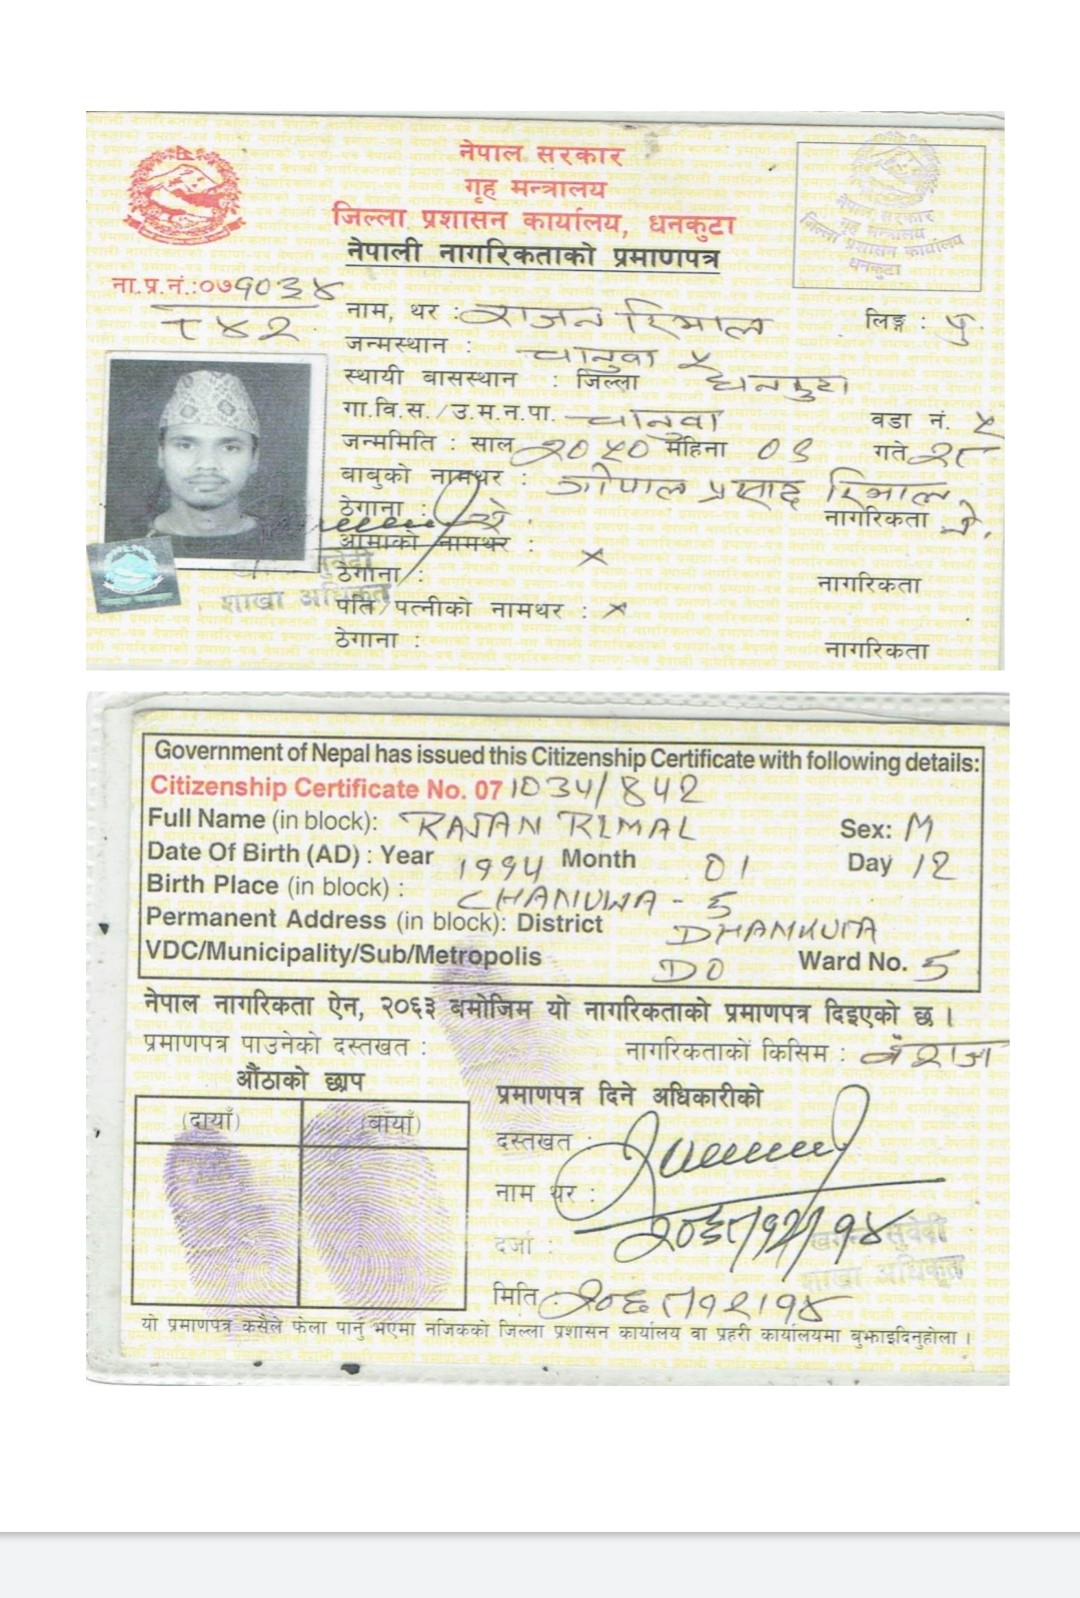 नेपाल सरकार
गृह मन्त्रालय
जिल्ला प्रशासन कार्यालय, धनकुटा
नेपाली नागरिकताको प्रमाणपत्र
नेपाल सरकार
गृह मन्त्रालय
जिल्ला प्रशासन कार्यालय
धनकुटा
ना.प्र.नं.:०७१०३४
८४२
नाम, थर : राजन रिमाल लिङ्ग : पु.
जन्मस्थान : चानुवा ५
स्थायी बासस्थान : जिल्ला धनकुटा
गा.वि.स./उ.म.न.पा. चानुवा वडा नं. ५
जन्ममिति : साल २०५० महिना ०९ गते २८
बाबुको नामथर : गोपाल प्रसाद रिमाल
ठेगाना : नागरिकता
आमाको नामथर : ×
ठेगाना : नागरिकता
शाखा अधिकृत
पति/पत्नीको नामथर : ×
ठेगाना : नागरिकता
Government of Nepal has issued this Citizenship Certificate with following details:
Citizenship Certificate No. 07 1034/842
Full Name (in block): RAJAN RIMAL Sex: M
Date Of Birth (AD) : Year 1994 Month 01 Day 12
Birth Place (in block) : CHANUWA - 5
Permanent Address (in block): District DHANKUTA
VDC/Municipality/Sub/Metropolis DO Ward No. 5
नेपाल नागरिकता ऐन, २०६३ बमोजिम यो नागरिकताको प्रमाणपत्र दिइएको छ ।
प्रमाणपत्र पाउनेको दस्तखत : नागरिकताको किसिम : वंशज
औंठाको छाप
(दायाँ) (बायाँ)
प्रमाणपत्र दिने अधिकारीको
दस्तखत :
नाम थर :
२०६८/१२/१४
दर्जा : सुवेदी
शाखा अधिकृत
मिति : २०६८/१२/१४
यो प्रमाणपत्र कसैले फेला पार्नु भएमा नजिकको जिल्ला प्रशासन कार्यालय वा प्रहरी कार्यालयमा बुझाइदिनुहोला ।